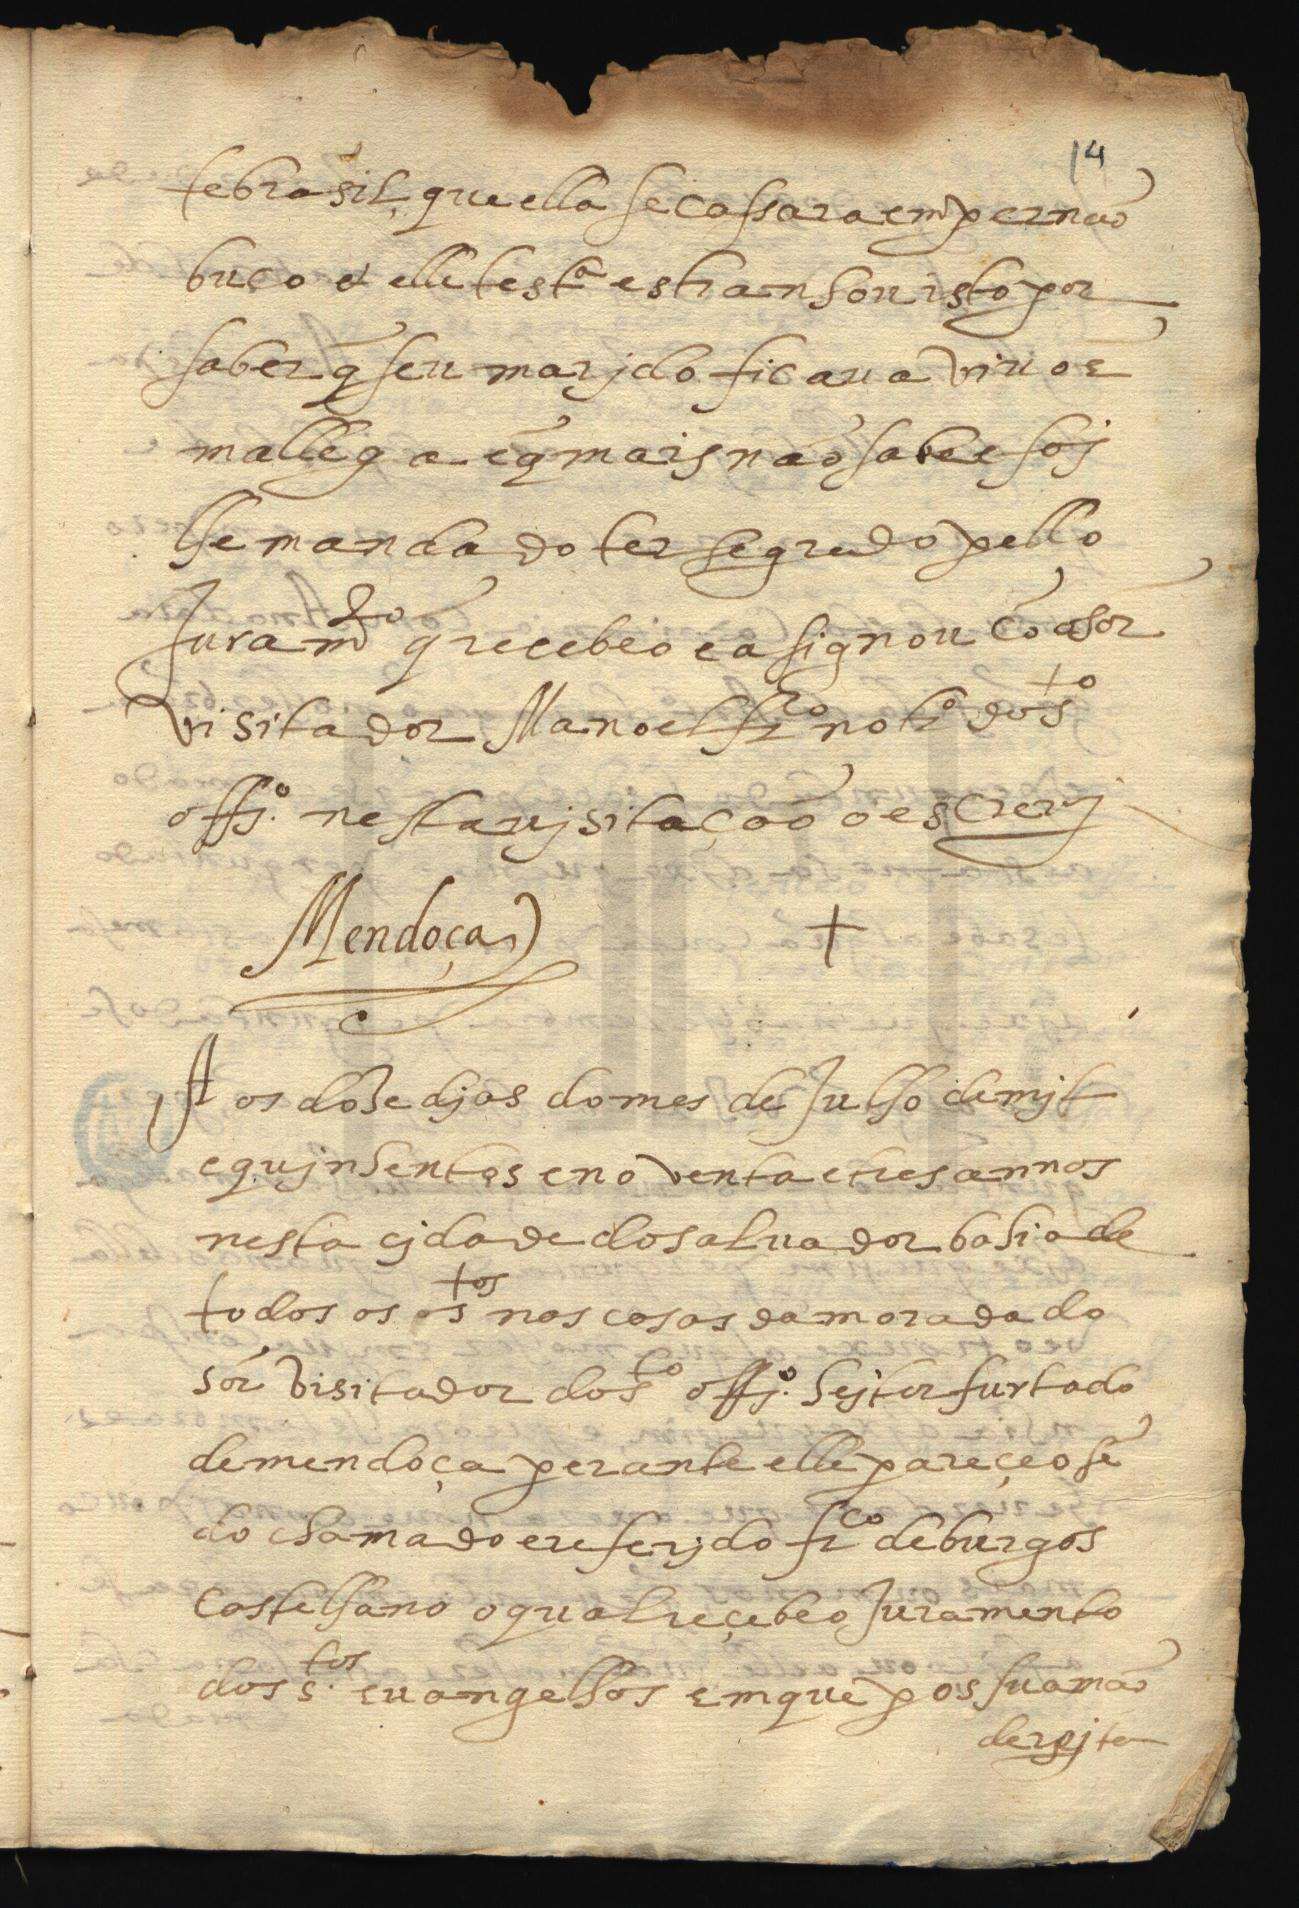 14
te brasil, que ella se cassara em pernão
buco e elle test.ª estranhou isto por
saber q̃ seu marjdo ficaua viuo ẽ
mallega e q̃ mais não sabe e foj
lhe mandado ter segredo pello
Juram.to q̃ recebeo e asignou cõ o sõr
visitador Manoel fr.co not.º do s.to
offj.º nesta vjsitação o escreuj
Mendoça +
Aos dose djas do mes de Julho de mjl
e qujnhentos e noventa e tres annos
nesta cjdade do saluador bahia de
todos os s.tos nas casas da morada do
sõr visitador do s.to offj.º hejtor furtado
de mendoça perante elle pareçeo sẽ
do chamado e referjdo fr.co de burgos
castelhano o qual reçebeo Juramento
dos s.tos euangelhos em que pos sua mão
derejta